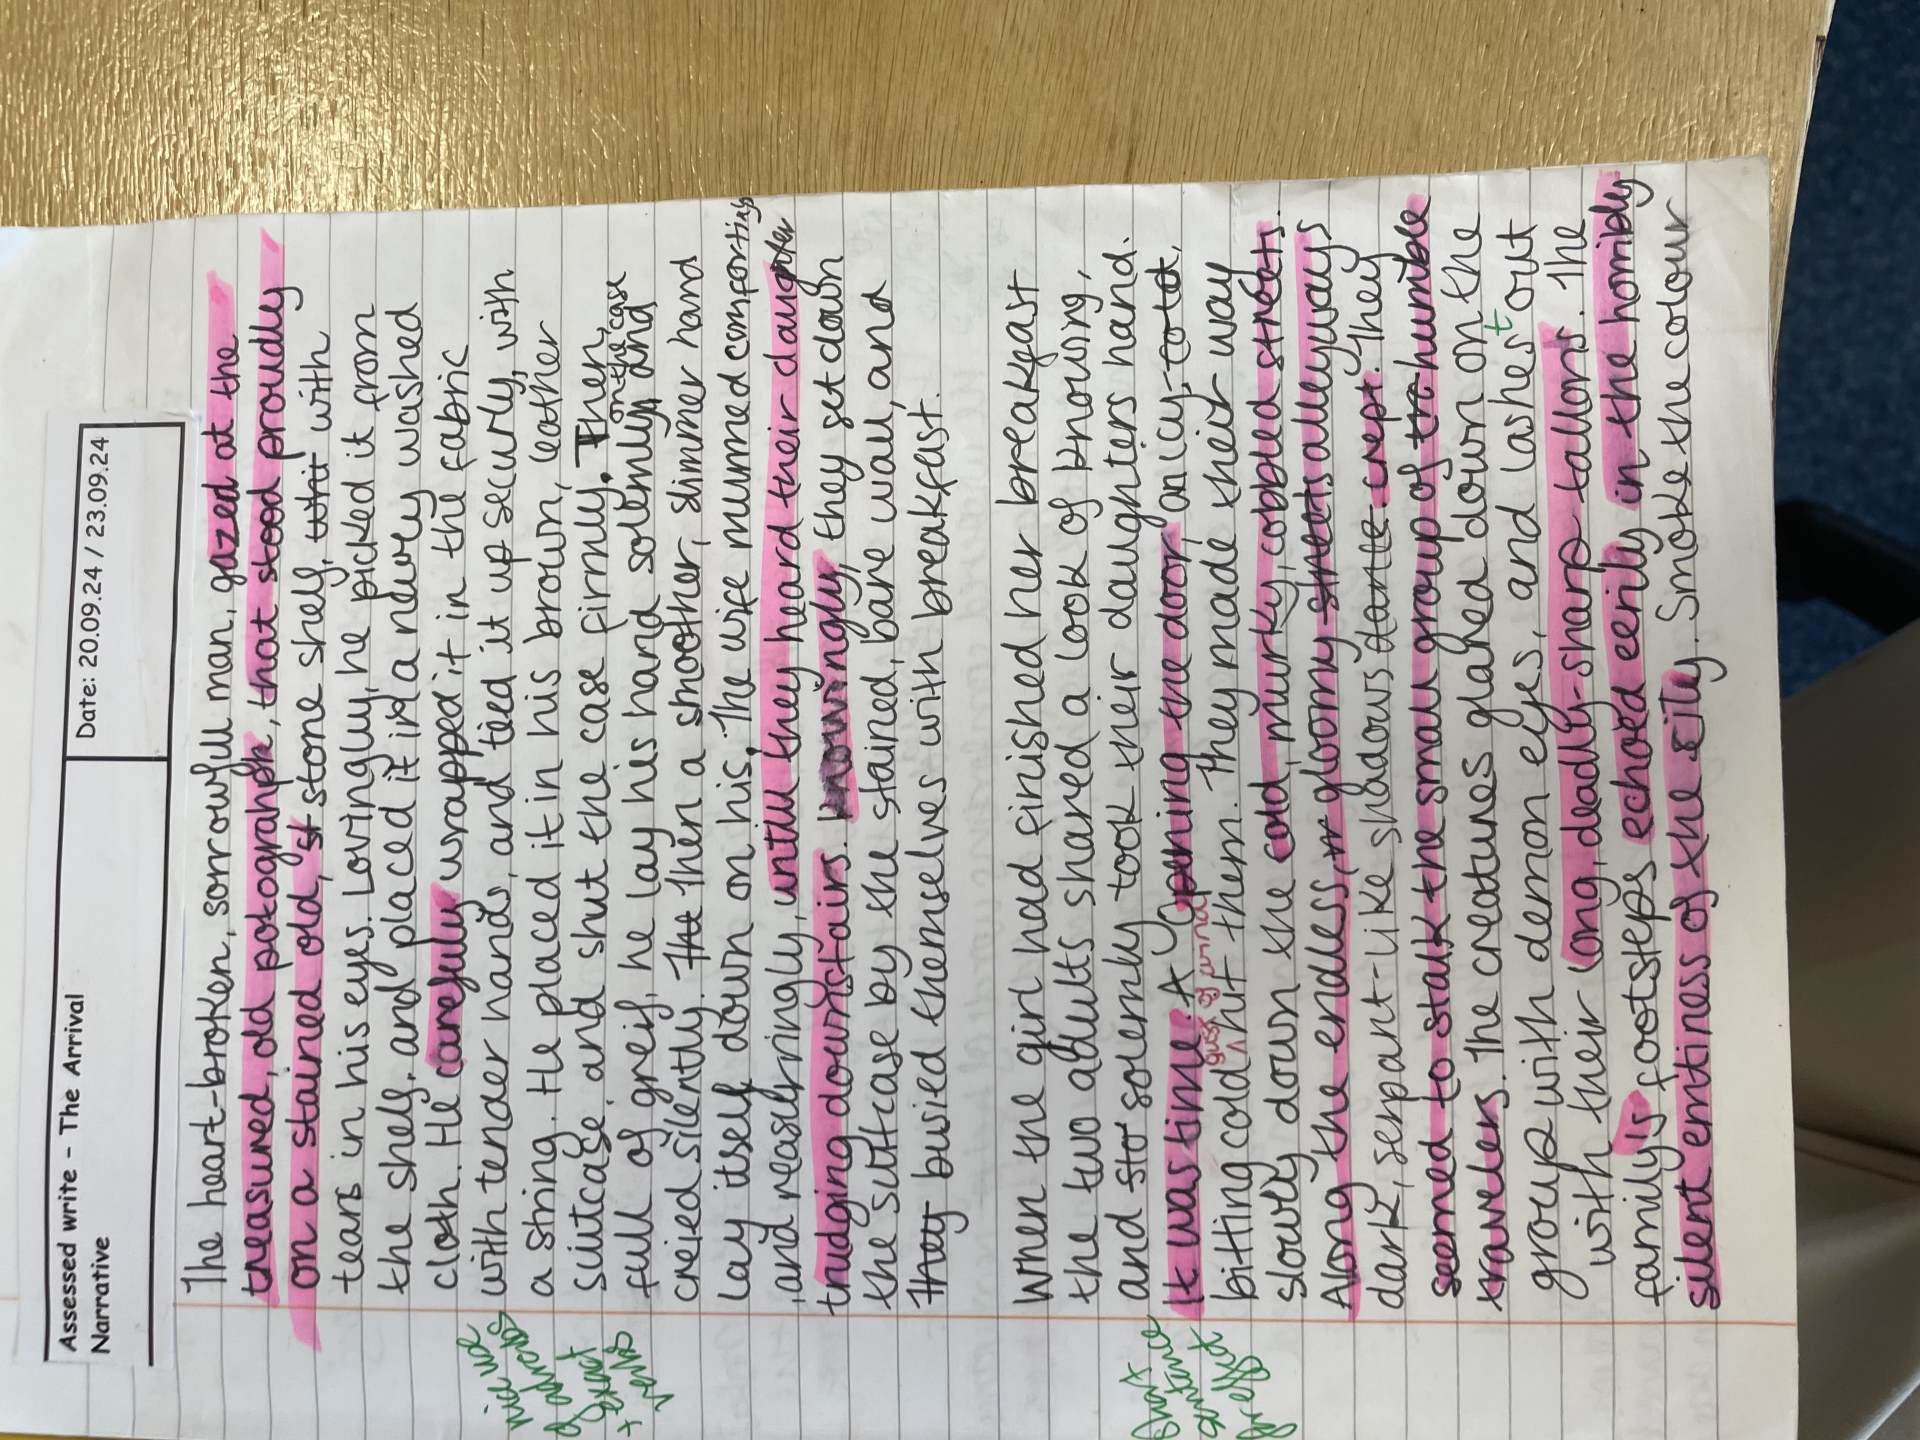 Assessed write - The Arrival
Narrative
Date: 20.09.24 / 23.09.24
The heart-broken, sorrowful man, gazed at the
treasured, old potograhph, that stood proudly
on a stained old, st stone shelf, with
tears in his eyes. Lovingly, he picked it from
the shelf, and placed it in a newly washed
cloth. He carefuly wrapped it in the fabric
with tender hands, and tied it up securly, with
a string. He placed it in his brown, leather
suitcase, and shut the case firmly. Then,
full of greif, he lay his hand solemnly on the case and
creied silently. Then a smoother, slimmer hand
lay itself down on his. The wife mumed comfortingly
,and reasurringly, untill they heard their daughter
trudging downstairs. knowingly, they set down
the suitcase by the stained, bare wall, and
They busied themselves with breakfast.
When the girl had finished her breakfast
the two adults shared a look of knowing,
and sto solemly took their daughters hand.
It was time. A Opening the door, an icy, to tot,
bitting cold gust of wind hit them. They made their way
slowly down the cold, murky, cobbled streets.
Along the endless, gloomy streets alleyways
dark, serpant-like shadows crept. They
seemed to stalk the small group of tr humble
travelers. The creatures glahed down on the
group with demon eyes, and lashest out
with their long, deadly-sharp tallons. The
family's footsteps echoed eerily in the horribly
silent emtiness of the city. Smoke the colour
nice use
of adverbs
+ exact
verbs
Short
sentence
for effect